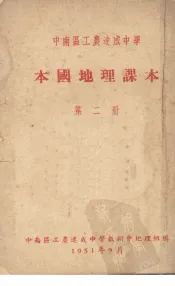 中南區工農速成中學
本國地理課本
第二册
中南區工農速成中學教研會地理組編
1954年9月